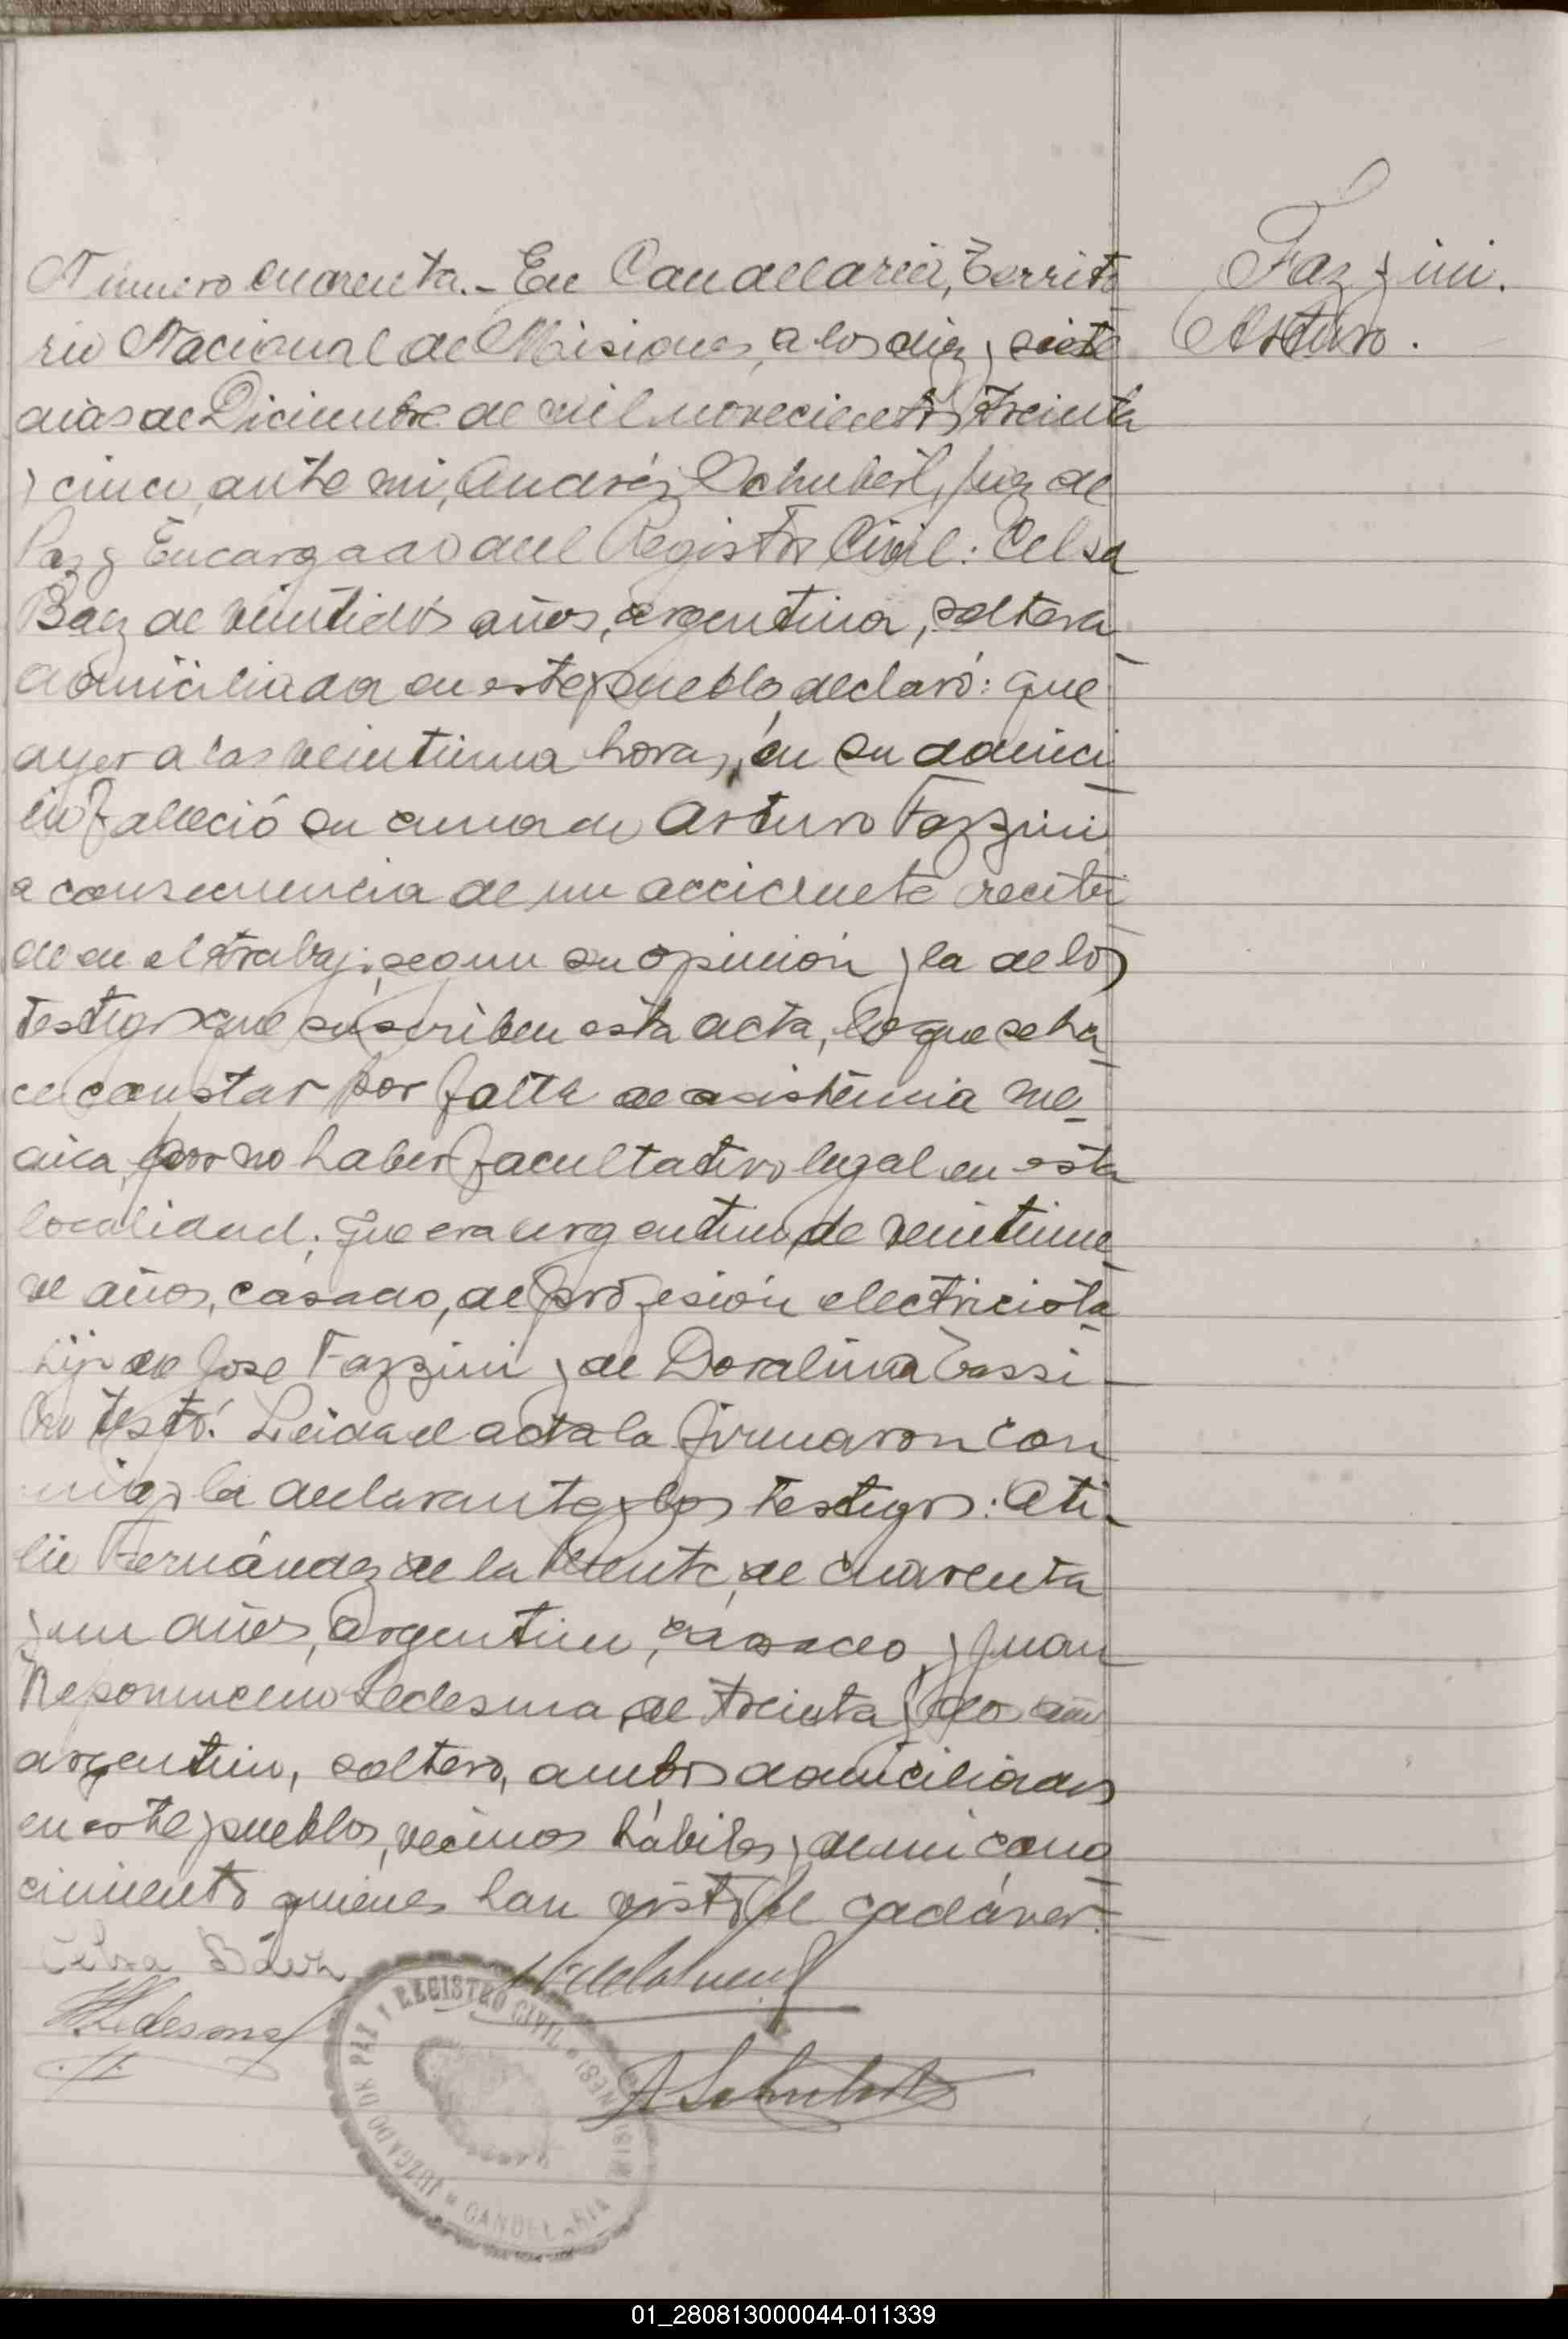 Número cuarenta.- En Candelaria, Territo
rio Nacional de Misiones, a los diez y siete
dias de Diciembre de mil novecientos treinta
y cinco, ante mi, Andrés Schubert, Juez de
Paz y Encargado del Registro Civil: Celsa
Baez de veintidós años, argentina, soltera
domiciliada en este pueblo, declaró: que
ayer a las veintiuna horas, en su domici
lio falleció su Arturo Fazzini
a consecuencia de un accidente recibi
do en el trabajo, segun su opinión y la de los
testigos que suscriben esta acta, lo que se ha
ce constar por falta de asistencia me
dica, por no haber facultativo legal en esta
localidad; que era argentino, de veintinue
ve años, casado, de profesión electricista
hijo de Jose Fazzini y de Doralina Tassi
No testó. Leida el acta la firmaron con
migo la declarante y los testigos: Ati-
lio Fernández de la Puente, de cuarenta
y un años, argentino, casado, y Juan
Nepomuceno Ledesma, de treinta y dos años
argentino, soltero, ambos domiciliados
en este pueblo, vecinos hábiles y de mi cono
cimiento quienes han visto el cadáver.
Celsa Báez
Ledesma
A Schubert
JUZGADO DE PAZ Y REGISTRO CIVIL
CANDELARIA
(MISIONES)
Fazzini.
Arturo.
01_280813000044-011339